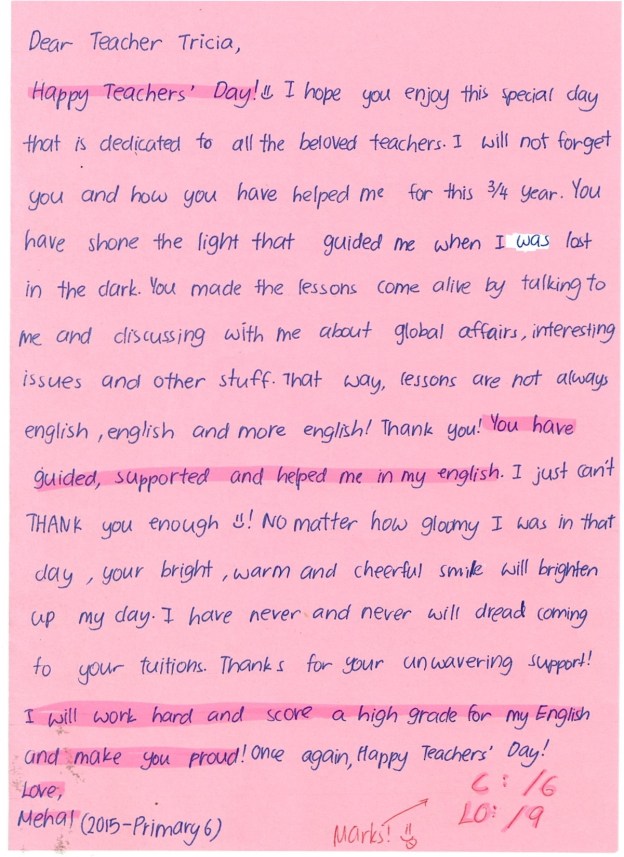 Dear Teacher Tricia,
Happy Teachers' Day! I hope you enjoy this special day
that is dedicated to all the beloved teachers. I will not forget
you and how you have helped me for this 3/4 year. You
have shone the light that guided me when I was lost
in the dark. You made the lessons come alive by talking to
me and discussing with me about global affairs, interesting
issues and other stuff. That way, lessons are not always
english, english and more english! Thank you! You have
guided, supported and helped me in my english. I just can't
THANK you enough! No matter how gloomy I was in that
day, your bright, warm and cheerful smile will brighten
up my day. I have never and never will dread coming
to your tuitions. Thanks for your unwavering support!
I will work hard and score a high grade for my English
and make you proud! Once again, Happy Teachers' Day!
Love,
Mehal (2015-Primary 6)
Marks!
C: /6
LO: /9